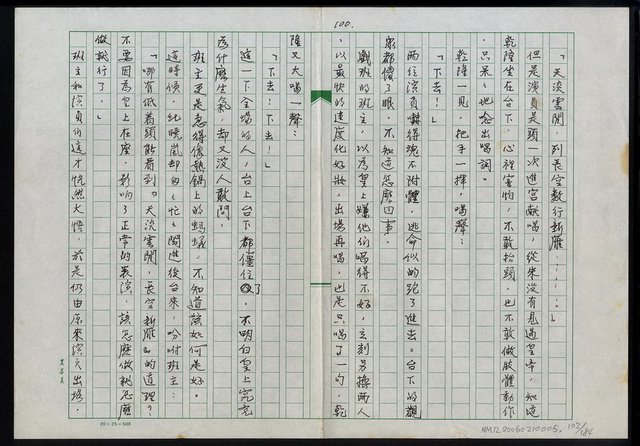 100.
「天淡雲開，列長空數行新雁……。」
但是演員是頭一次進宮獻唱，從來沒有見過皇帝，知道
乾隆坐在台下，心裡害怕，不敢抬頭，也不敢做肢體動作
，只呆呆地唸出唱詞。
乾隆一見，把手一揮，喝聲：
「下去！」
兩位演員嚇得魂不附體，逃命似的跑了進去。台下的觀
眾都傻了眼，不知道怎麼回事。
戲班的班主，以為皇上嫌他們唱得不好，立刻另換兩人
，以最快的速度化好妝，出場再唱，也是只唱了一句，乾
隆又大喝一聲：
「下去！下去！」
這一下全場的人，台上台下都僵住了，不明白皇上究竟
為什麼生氣，卻又沒人敢問。
班主更是急得像熱鍋上的螞蟻，不知道該如何是好。
這時候，紀曉嵐卻匆匆忙忙闖進後台來，吩咐班主：
「哪有低着頭能看到『天淡雲開，長空新雁』的道理？
不要因為皇上在座，影响了正常的表演，該怎麼做就怎麼
做就行了。」
班主和演員們這才恍然大悟，於是仍由原來演員出場，
20×25=500
NMTL20060210005
102/184